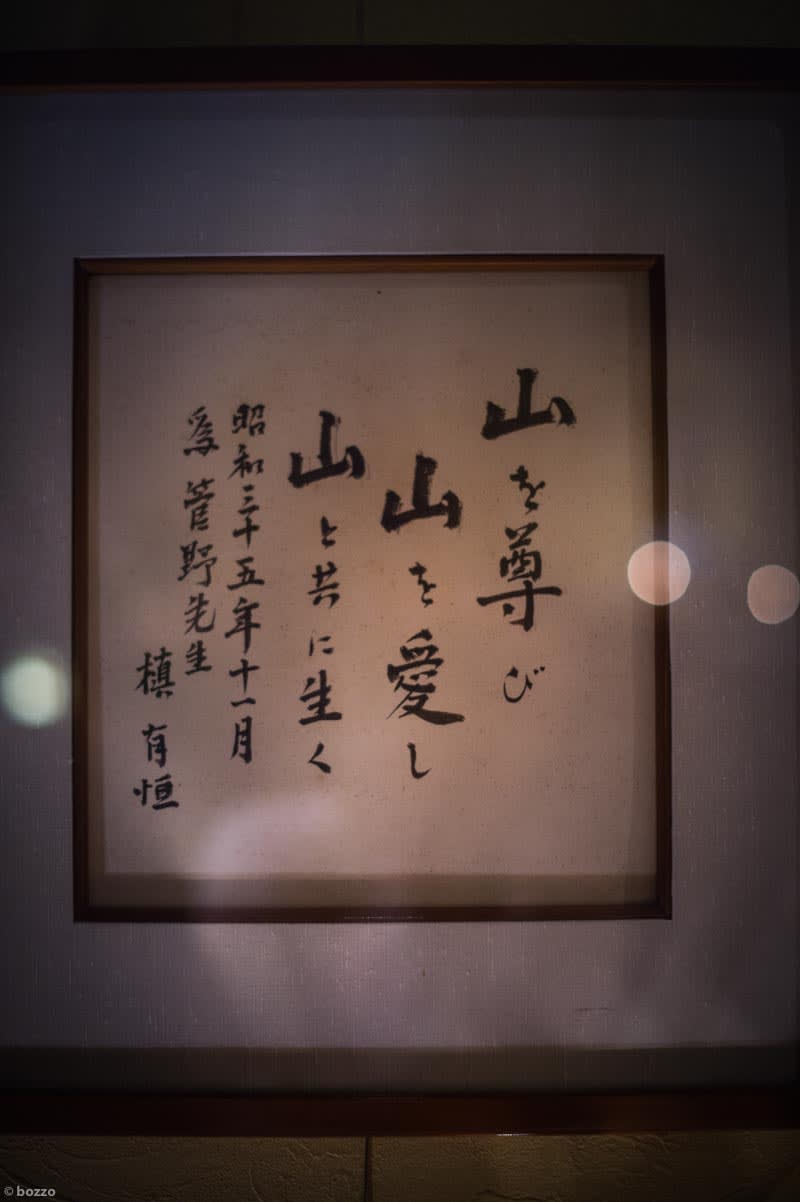 山を尊び
山を愛し
山と共に生く
昭和三十五年十一月
為菅野先生
槙有恒
© bozzo